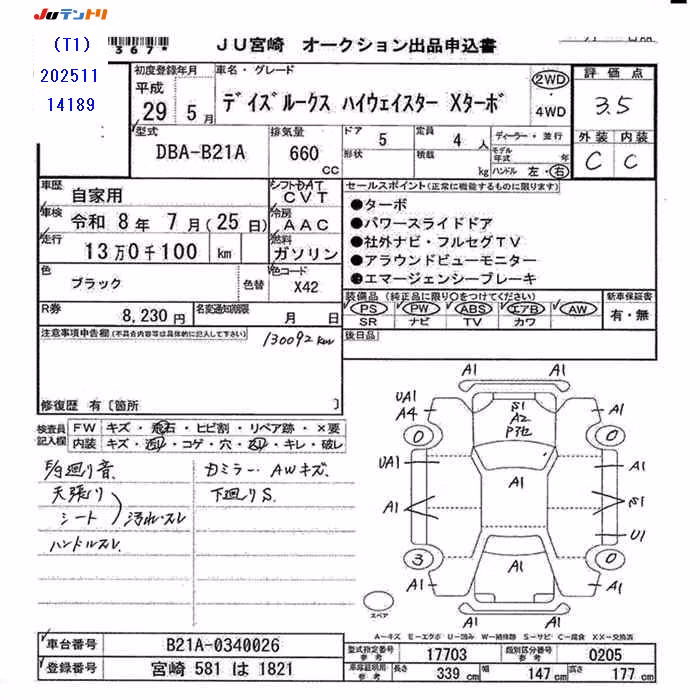 JUテントリ
(T1)
202511
14189
367*
JU宮崎 オークション出品申込書
初度登録年月
平成
29 5月
車名・グレード
デイズルークス ハイウェイスター Xターボ
2WD
4WD
評価点
3.5
外装 内装
C C
型式
DBA-B21A
排気量
660 cc
ドア 5
形状
定員 4 人
積載 kg
ディーラー・並行
モデル年式 年
ハンドル 左・右
車歴 自家用
車検 令和 8年 7月(25日)
走行 13万0千100 km
シフト DAT
CVT
冷房
AAC
燃料
ガソリン
セールスポイント(正常に機能するものに限ります)
●ターボ
●パワースライドドア
●社外ナビ・フルセグTV
●アラウンドビューモニター
●エマージェンシーブレーキ
色 ブラック 色替
色コード
X42
R券 8,230円
名変通知期限 月 日
装備品(純正品に限り○をつけてください)
PS PW ABS エアB AW
SR ナビ TV カワ
新車保証書
有・無
後日品
注意事項申告欄(不具合内容等は具体的に記入して下さい)
130092km
修復歴 有〔箇所 〕
検査員記入欄
FW キズ・飛石・ヒビ割・リペア跡・×要
内装 キズ・コゲ・穴・キレ・破レ
廻り音
天張り
シート 汚れ・スレ
ハンドルスレ
カミラー・AWキズ
下廻りS
A1
A1
UA1
A4
S1
A2
A1
0
0
UA1
A1
A1
A1
S1
U1
3
0
A1
A1
A1
A1
スペア
A-キズ E-エクボ U-凹み W-補修跡 S-サビ C-腐食 XX-交換済
車台番号 B21A-0340026
登録番号 宮崎 581 は 1821
型式指定番号 参考 17703
類別区分番号 参考 0205
車庫証明用 参考 長さ 339 cm 幅 147 cm 高さ 177 cm